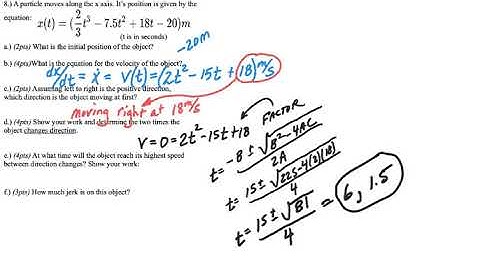 8.) A particle moves along the x axis. It's position is given by the
equation: x(t) = (2/3 t³ – 7.5t² + 18t – 20)m
(t is in seconds)
a.) (2pts) What is the initial position of the object?
-20m
b.) (4pts) What is the equation for the velocity of the object?
dx/dt = ẋ = v(t) = (2t² - 15t + 18) m/s
c.) (2pts) Assuming left to right is the positive direction,
which direction is the object moving at first?
moving right at 18 m/s
d.) (4pts) Show your work and determine the two times the
object changing direction.
V = 0 = 2t² - 15t + 18
FACTOR
t = -B ± √B² - 4AC / 2A
t = 15 ± √225 - 4(2)(18) / 4
t = 15 ± √81 / 4 = 6, 1.5
e.) (4pts) At what time will the object reach its highest speed
between direction changes? Show your work:
f.) (3pts) How much jerk is on this object?